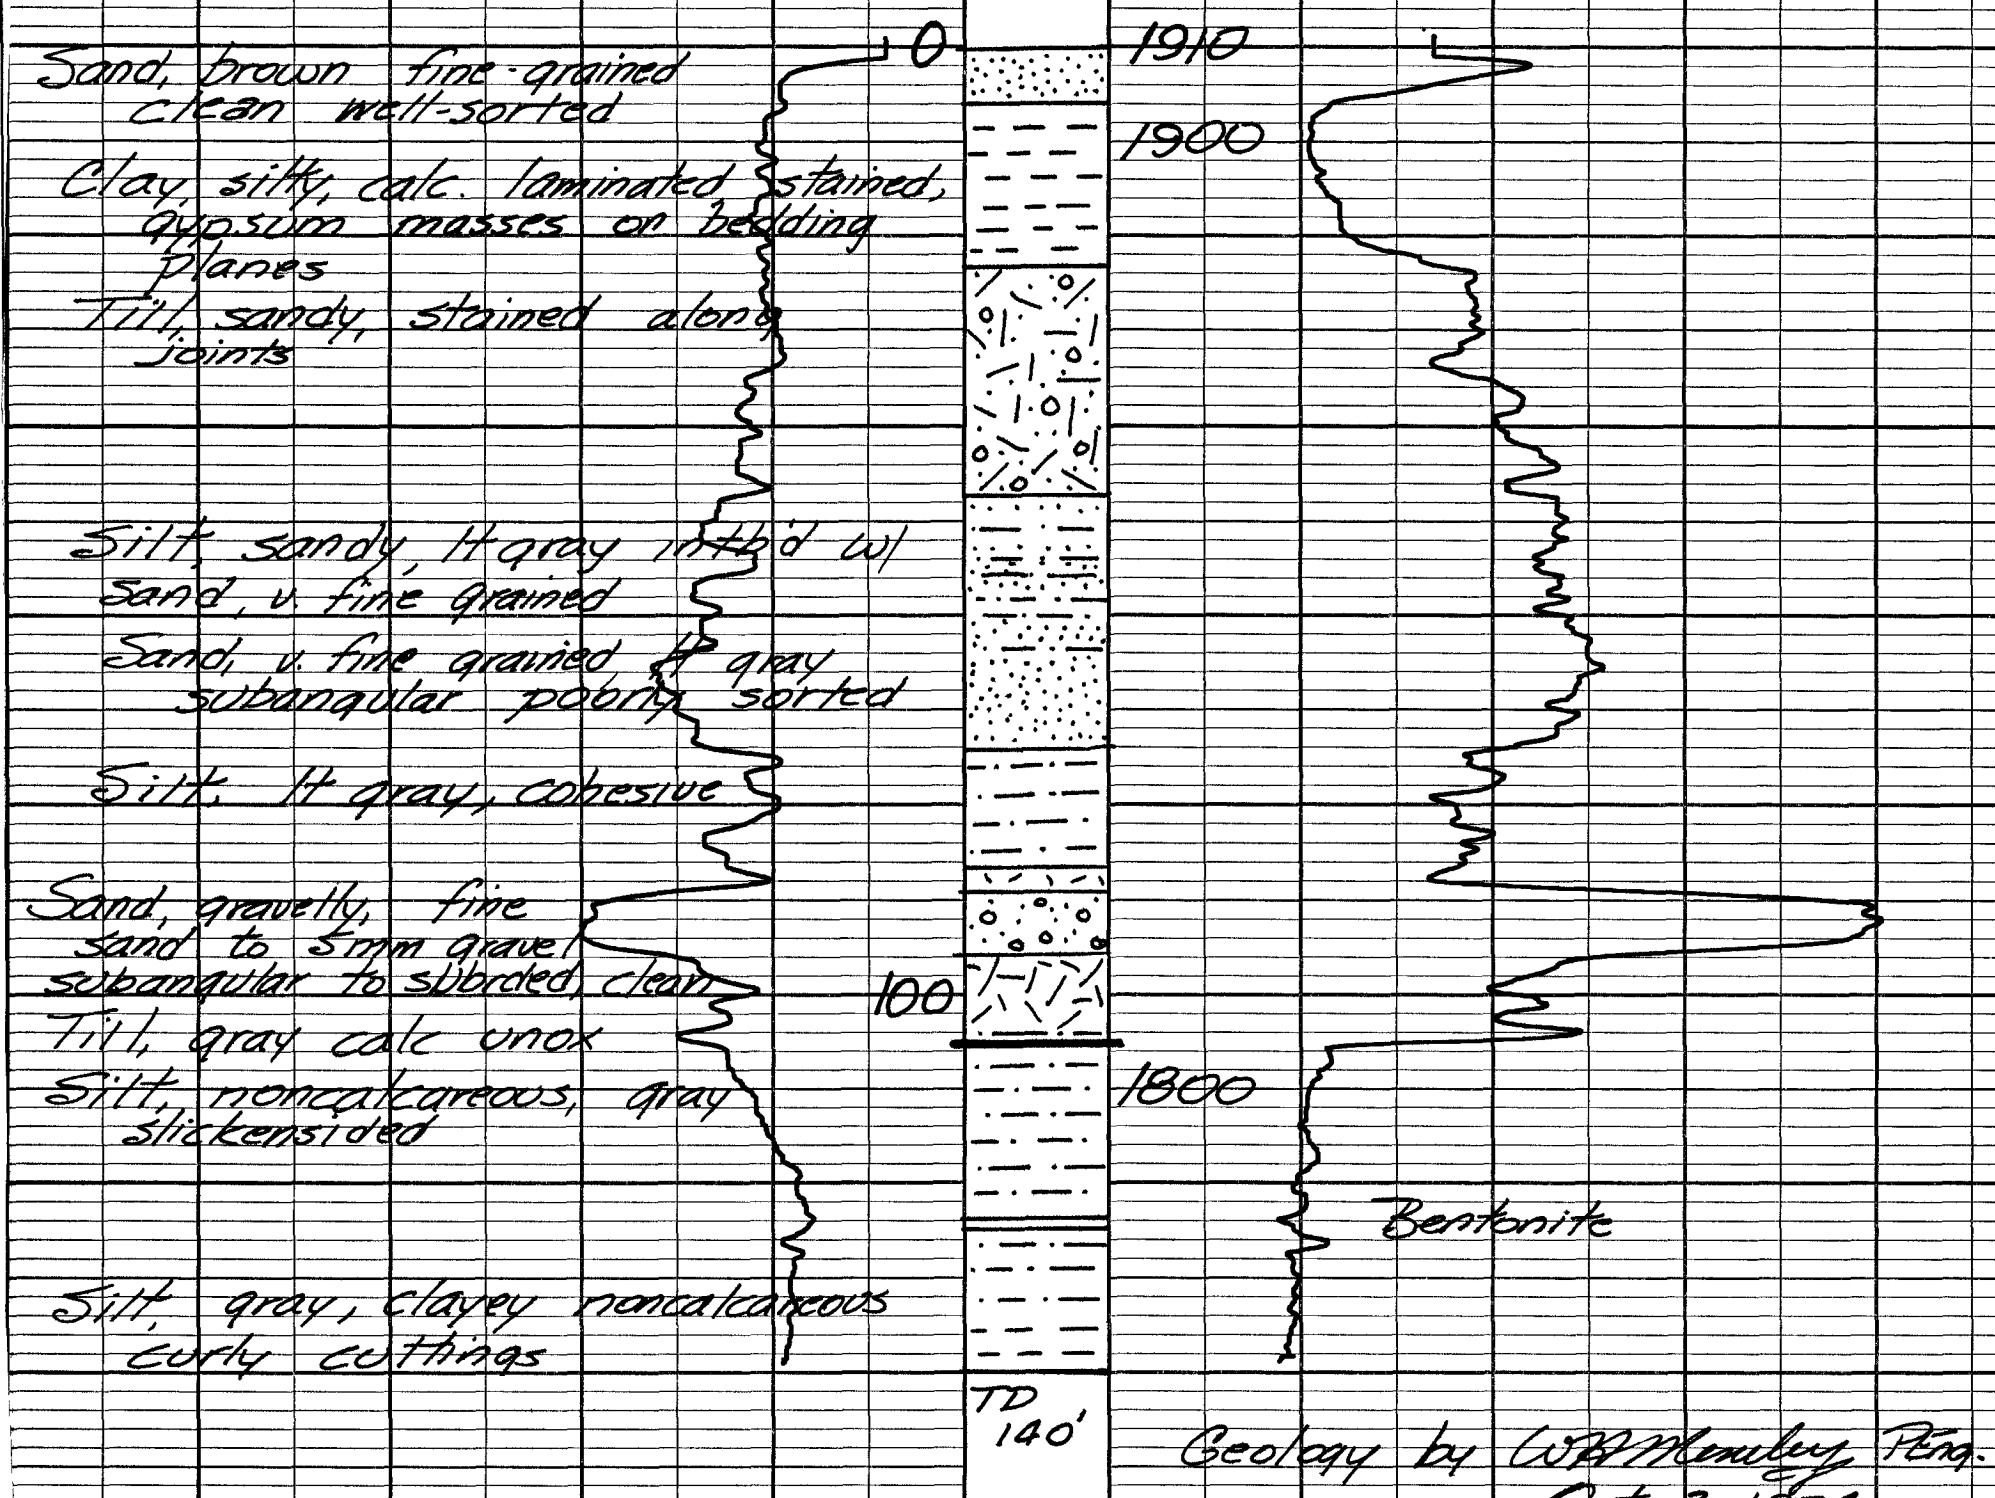 0
1910
Sand, brown fine-grained
clean well-sorted
1900
Clay, silty, calc. laminated, stained,
gypsum masses on bedding
planes
Till, sandy, stained along
joints
Silt, sandy, lt gray intb'd w/
sand, v. fine grained
Sand, v. fine grained lt gray
subangular poorly sorted
Silt, lt gray, cohesive
Sand, gravelly, fine
sand to 5mm gravel
subangular to subrded, clean
100
Till, gray calc unox
1800
Silt, noncalcareous, gray
slickensided
Bentonite
Silt, gray, clayey noncalcareous
curly cuttings
TD
140'
Geology by P.Eng.